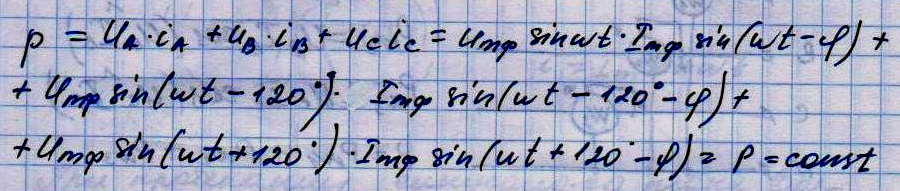 p = uA·iA + uB·iB + uCiC = Umф sinωt·Imф sin(ωt-φ) +
+ Umф sin(ωt-120°)· Imф sin(ωt-120°-φ) +
+ Umф sin(ωt+120°)·Imф sin(ωt+120°-φ) = P = const